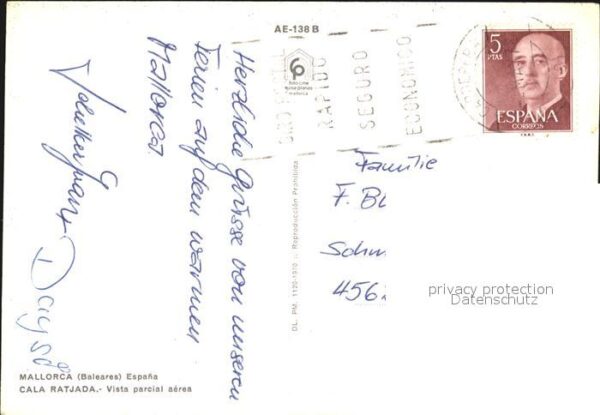 AE-138 B
foto-cine
mallorca
GIRO POSTAL
RAPIDO
SEGURO
ECONOMICO
5
PTAS
ESPAÑA
CORREOS
Herzliche Grüsse von unseren
Ferien auf dem warmen
Mallorca.
Familie
F. BL
Schm
456
privacy protection
Datenschutz
DL. PM. 1120-1970 :: Reproducción Prohibida
MALLORCA (Baleares) España
CALA RATJADA.- Vista parcial aérea